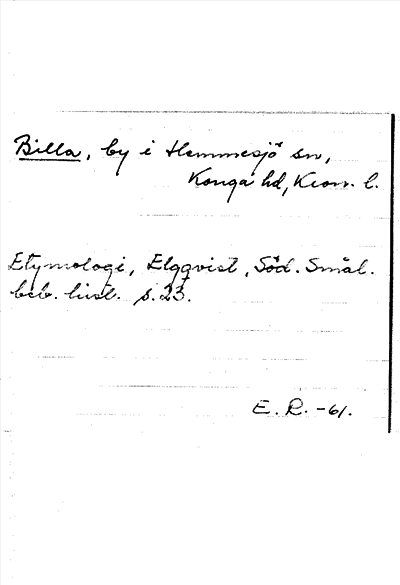 Billa, by i Hemmesjö sn,
Konga hd, Kron. l.
Etymologi, Elqqvist, Söd. Smål.
beb. hist. s. 23.
E. R. -61.